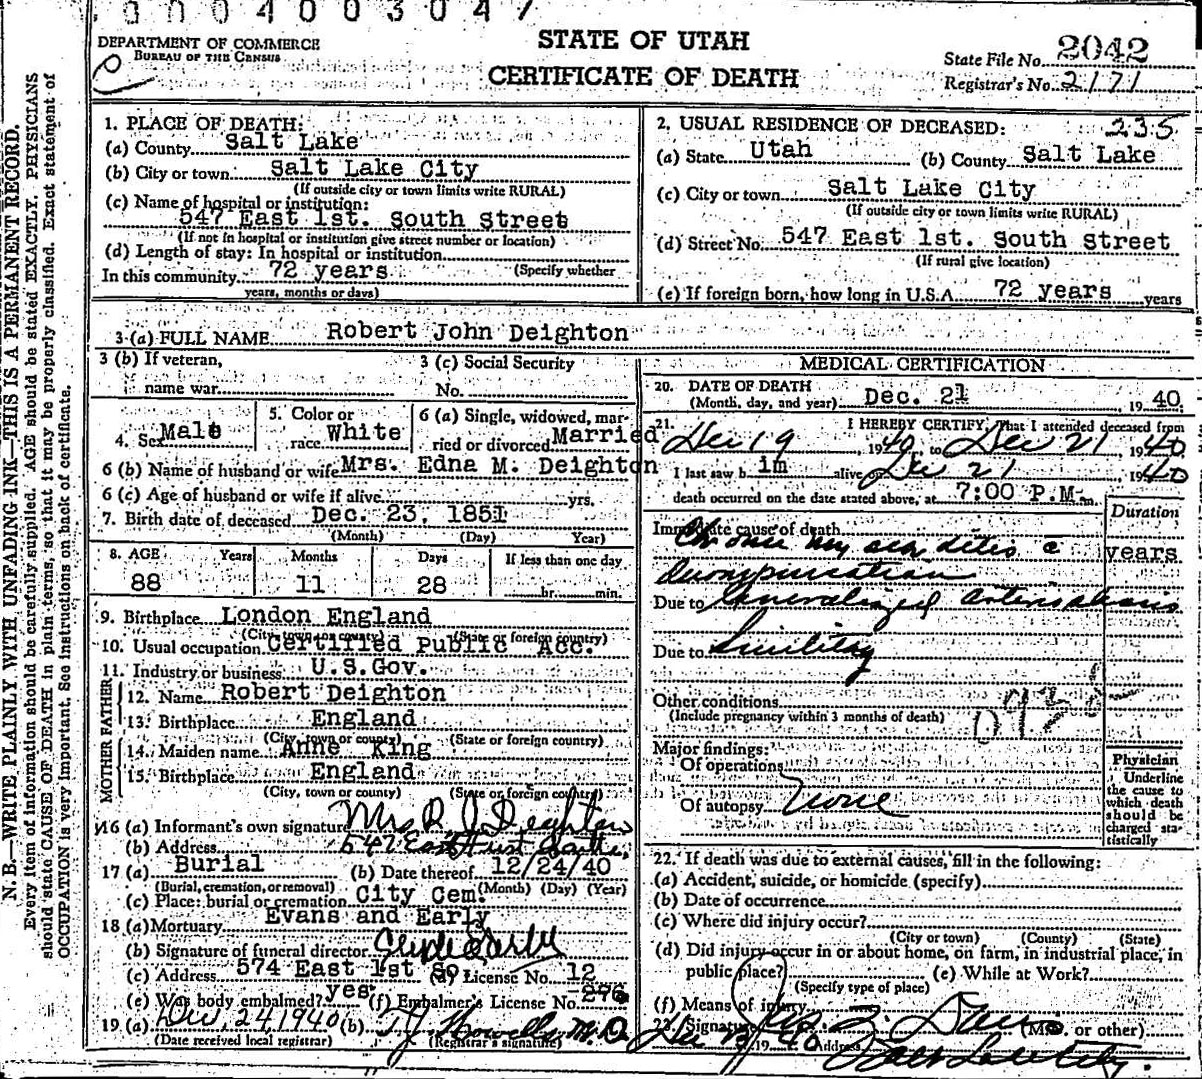 0004003047
DEPARTMENT OF COMMERCE
BUREAU OF THE CENSUS
STATE OF UTAH
CERTIFICATE OF DEATH
State File No. 2042
Registrar's No. 2171
N. B.—WRITE PLAINLY WITH UNFADING INK—THIS IS A PERMANENT RECORD.
Every item of information should be carefully supplied. AGE should be stated EXACTLY. PHYSICIANS
should state CAUSE OF DEATH in plain terms, so that it may be properly classified. Exact statement of
OCCUPATION is very important. See instructions on back of certificate.
1. PLACE OF DEATH:
(a) County Salt Lake
(b) City or town Salt Lake City
(If outside city or town limits write RURAL)
(c) Name of hospital or institution:
547 East 1st. South Street
(If not in hospital or institution give street number or location)
(d) Length of stay: In hospital or institution
In this community 72 years (Specify whether
years, months or days)
2. USUAL RESIDENCE OF DECEASED: 235
(a) State Utah (b) County Salt Lake
(c) City or town Salt Lake City
(If outside city or town limits write RURAL)
(d) Street No. 547 East 1st. South Street
(If rural give location)
(e) If foreign born, how long in U.S.A. 72 years years
3 (a) FULL NAME Robert John Deighton
3 (b) If veteran,
name war
3 (c) Social Security
No.
4. Sex Male
5. Color or
race White
6 (a) Single, widowed, mar-
ried or divorced Married
6 (b) Name of husband or wife Mrs. Edna M. Deighton
6 (c) Age of husband or wife if alive yrs.
7. Birth date of deceased Dec. 23, 1851
(Month) (Day) Year)
8. AGE Years Months Days If less than one day
88 11 28 hr. min.
9. Birthplace London England
(City, town or county) (State or foreign country)
10. Usual occupation Certified Public Acc.
11. Industry or business U.S.Gov.
FATHER
12. Name Robert Deighton
13. Birthplace England
(City, town or county) (State or foreign country)
MOTHER
14. Maiden name Anne King
15. Birthplace England
(City, town or county) (State or foreign country)
16 (a) Informant's own signature Mrs R J Deighton
(b) Address 547 East First South
17 (a) Burial (b) Date thereof 12/24/40
(Burial, cremation, or removal) (Month) (Day) (Year)
(c) Place: burial or cremation City Cem.
18 (a) Mortuary Evans and Early
(b) Signature of funeral director
(c) Address 574 East 1st So. (d) License No. 12
(e) Was body embalmed? yes (f) Embalmer's License No. 276
19 (a) Dec. 24 1940 (b) T. J. Howells M.D.
(Date received local registrar) (Registrar's signature)
MEDICAL CERTIFICATION
20. DATE OF DEATH
(Month, day, and year) Dec. 21 1940
21. I HEREBY CERTIFY, That I attended deceased from
Dec 19, 1940, to Dec 21, 1940
I last saw him alive Dec 21 1940
death occurred on the date stated above, at 7:00 P.M. m.
Duration
Immediate cause of death
Chronic myocarditis c years
decompensation
Due to Generalized arteriosclerosis
Due to Senility
Other conditions
(Include pregnancy within 3 months of death)
Major findings:
Of operations
Of autopsy None
Physician
Underline
the cause to
which death
should be
charged sta-
tistically
22. If death was due to external causes, fill in the following:
(a) Accident, suicide, or homicide (specify)
(b) Date of occurrence
(c) Where did injury occur?
(City or town) (County) (State)
(d) Did injury occur in or about home, on farm, in industrial place, in
public place? (e) While at Work?
(Specify type of place)
(f) Means of injury
23. Signature (M.D. or other)
Dec 19 40 Address Salt Lake City.